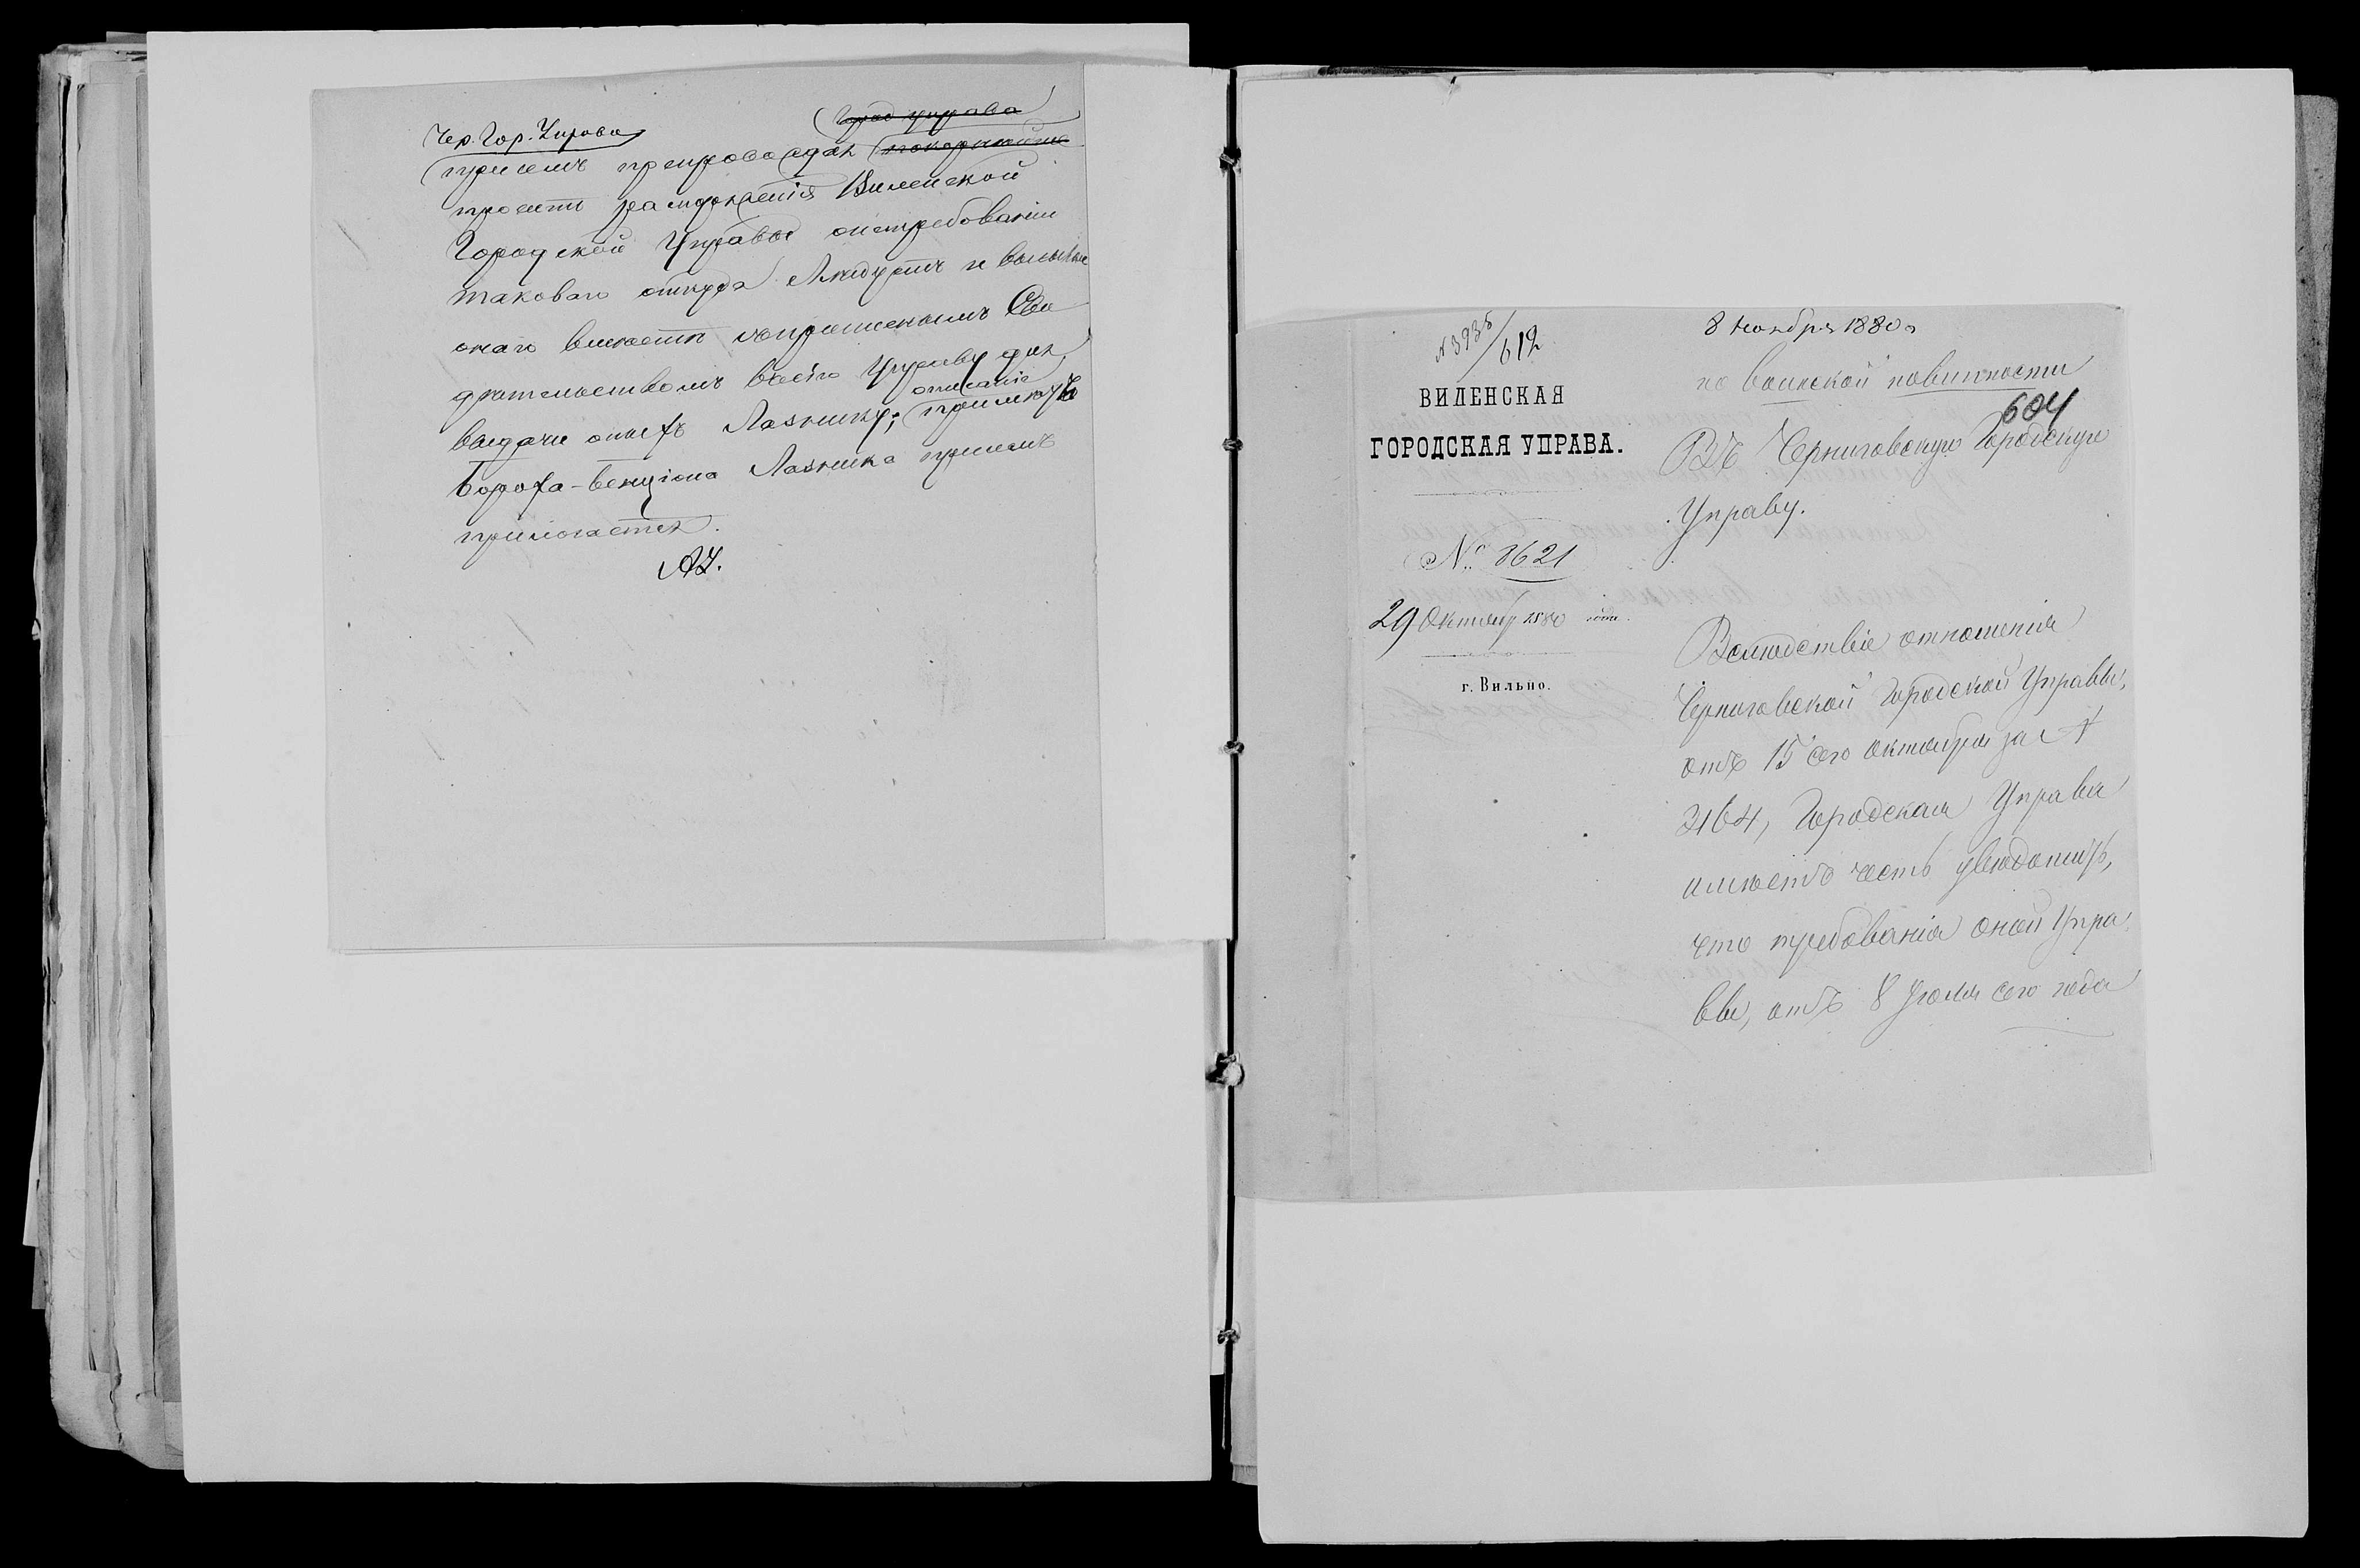 Город управа
Чер. Гор. Управа
при семъ препровождая покорнѣйше
проситъ распоряженія Виленской
Городской Управы о истребованіи
таковаго откуда слѣдуетъ и высылке
онаго вмѣстѣ съ
дѣтельствомъ въ сію Управу для
выдачи оныхъ Лазнику;
описаніе примѣтъ
Бороха-Бенціона Лазника при семъ
прилогается.
№ 3935/612
ВИЛЕНСКАЯ
ГОРОДСКАЯ УПРАВА.
№ 8621
29 Октября 1880 года.
г. Вильно.
8 Ноября 1880 г
по воинской повинности
604
Въ Черниговскую Городскую
Управу.
Вслѣдствіе отношенія
Черниговской Городской Управы,
отъ 15 сего Октября за №
3164, Городская Управа
имѣетъ честь увѣдомить,
что требованія оной Упра
вы, отъ 8 Іюля сего года